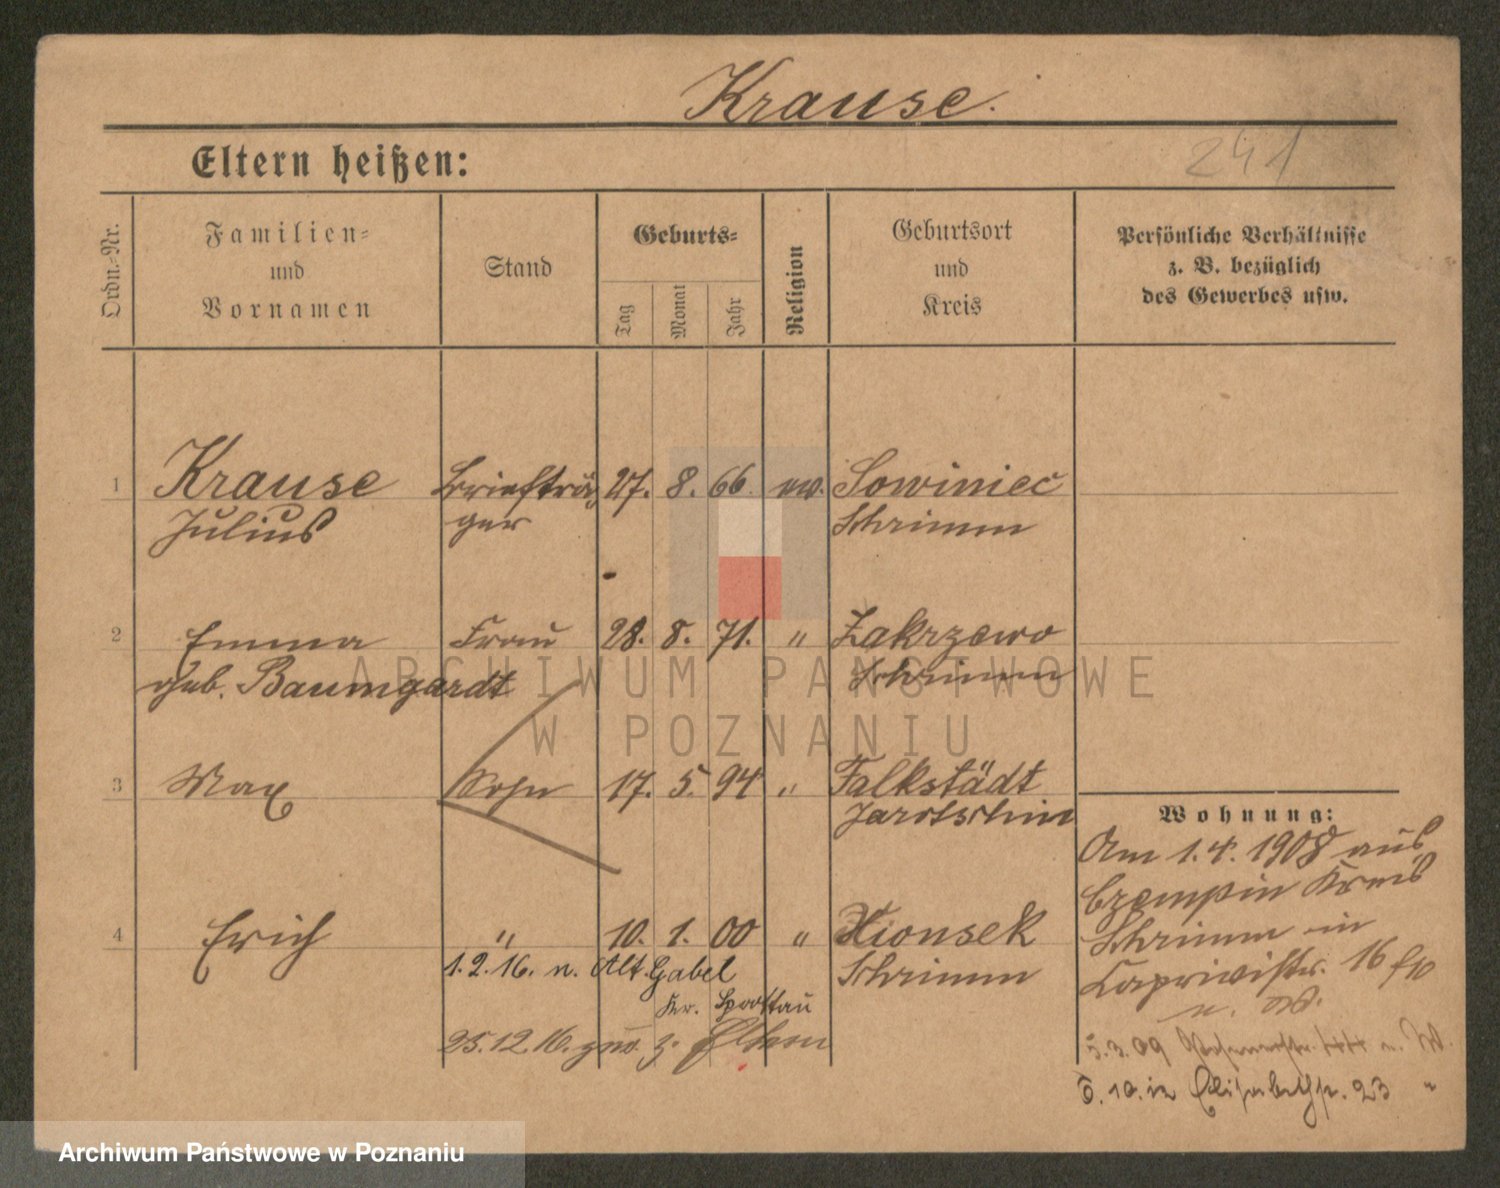 Krause.
241
Eltern heißen:
Ordn.-Nr.
Familien-
und
Vornamen
Stand
Geburts-
Tag
Monat
Jahr
Religion
Geburtsort
und
Kreis
Persönliche Verhältnisse
z. B. bezüglich
des Gewerbes usw.
1 Krause Briefträ- 27. 8. 66. ev. Sowiniec
Julius ger Schrimm
2 Emma Frau 28. 8. 71. " Zakrzewo
geb. Baumgardt Schrimm
3 Max Sohn 17. 5. 94 " Falkstädt
Jarotschin
Wohnung:
Am 1.4. 1908 aus
Czempin Kreis
Schrimm in
Caprivistr. 16
4 Erich " 10. 1. 00 " Xionsek
Schrimm
1.2.16. n. Alt Gabel
Kr. Sprottau
25.12.16. z. Eltern
5.3.09
6.10. in Elisabethstr. 23 "
ARCHIWUM PAŃSTWOWE
W POZNANIU
Archiwum Państwowe w Poznaniu